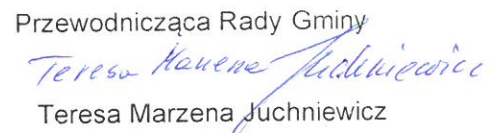 Przewodnicząca Rady Gminy
Teresa Marzena Juchniewicz
Teresa Marzena Juchniewicz